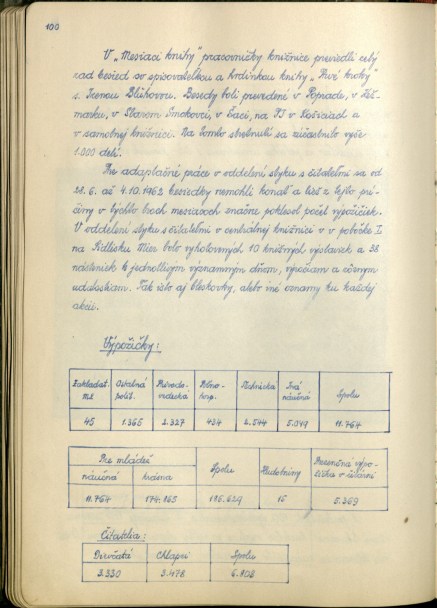 100
V „Mesiaci knihy" pracovníčky knižnice previedli celý
rad besied so spisovateľkou a hrdinkou knihy „Prvé kroky"
s. Irenou Blühovou. Besedy boli prevedené v Poprade, v Kež-
marku, v Starom Smokovci, v Šaci, na PJ v Košiciach a
v samotnej knižnici. Na tomto stretnutí sa zúčastnilo vyše
1.000 detí.
Pre adaptačné práce v oddelení styku s čitateľmi sa od
28.6. až 4.10.1962 besiedky nemohli konať a tiež z tejto prí-
činy v týchto troch mesiacoch značne poklesol počet výpožičiek.
V oddelení styku s čitateľmi v centrálnej knižnici v pobočke I.
na Sídlisku Mier bolo vyhotovených 10 knižných výstaviek a 38
násteniek k jednotlivým významným dňom, výročiam a rôznym
udalostiam. Tak isto aj bleskovky, alebo iné oznamy ku každej
akcii.
Výpožičky:
Ostatná polit. Prírodo- vedecká Poľno- hosp. Technická Iná náučná Spolu
45 1.365 2.327 434 2.544 5.049 11.764
Pre mládež Spolu Hudobniny Prezenčná výpo- žička v čitárni
náučná krásna
11.764 174.865 186.629 15 5.369
Čitatelia:
Dievčatá Chlapci Spolu
3.330 3.478 6.808